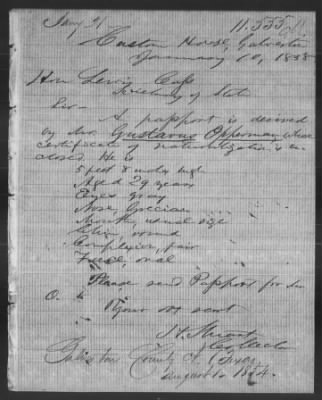 Jany 21
11.555
Custom House, Galveston
January 10, 1858
Hon Lewis Cass
Secretary of State
Sir -
A passport is desired
by Mr. Gustavus Opperman whose
certificate of naturalization is en-
closed. He is
5 feet 8 inches high
Aged 29 years
Eyes gray
Nose, Grecian
Mouth, usual size
Chin, round
Complexion, fair
Face, oval
Please send Passport for
O. to
Your Obt servt
Collector
Galveston County
August 1854.